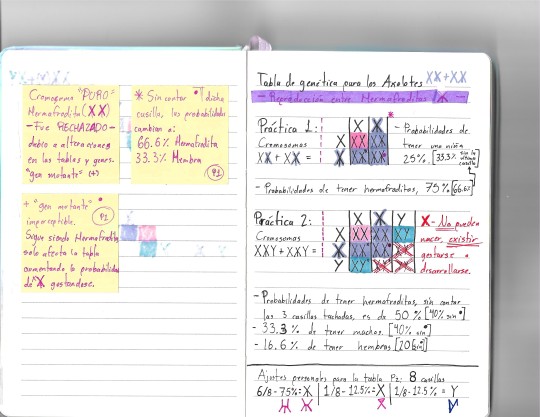 Cromogramo "PURO"
Hermafrodita (XX)
- Fue RECHAZADO -
debio a alteraciones
en las tablas y gears.
"gen mutante" (+)
* Sin contar dicha
casilla, las probabilidades
cambian a:
66.6% Hermafrodita
33.3% Hembra
P1
+ "gen mutante"
imperceptible.
P2
Sigue siendo Hermafrodita,
solo afecta la tabla
aumentando la probabilidad
de X gestandose.
Tabla de genética para los Axolotes XX+XX
- Reproducción entre Hermafroditas
Práctica 1:
Cromosomas
XX + XX =
X X
X XX XX
X XX XX
*
- Probabilidades de
tener una niña
25%. [33.3% sin la última casilla]
- Probabilidades de tener hermafroditas, 75% [66.6%]
Práctica 2:
Cromosomas
XXY + XXY =
X X Y
X XX XX XY
X XX XX
Y XY
X - No pueden
nacer, existir
gestarse o
desarrollarse.
- Probabilidades de tener hermafroditas, sin contar
las 3 casillas tachadas, es de 50% [40% sin *]
- 33.3% de tener machos. [40% sin *]
- 16.6% de tener hembras [20% sin *]
Ajustes personales para la tabla P2: 8 casillas
6/8 - 75% = X | 1/8 - 12.5% = X | 1/8 - 12.5% = Y